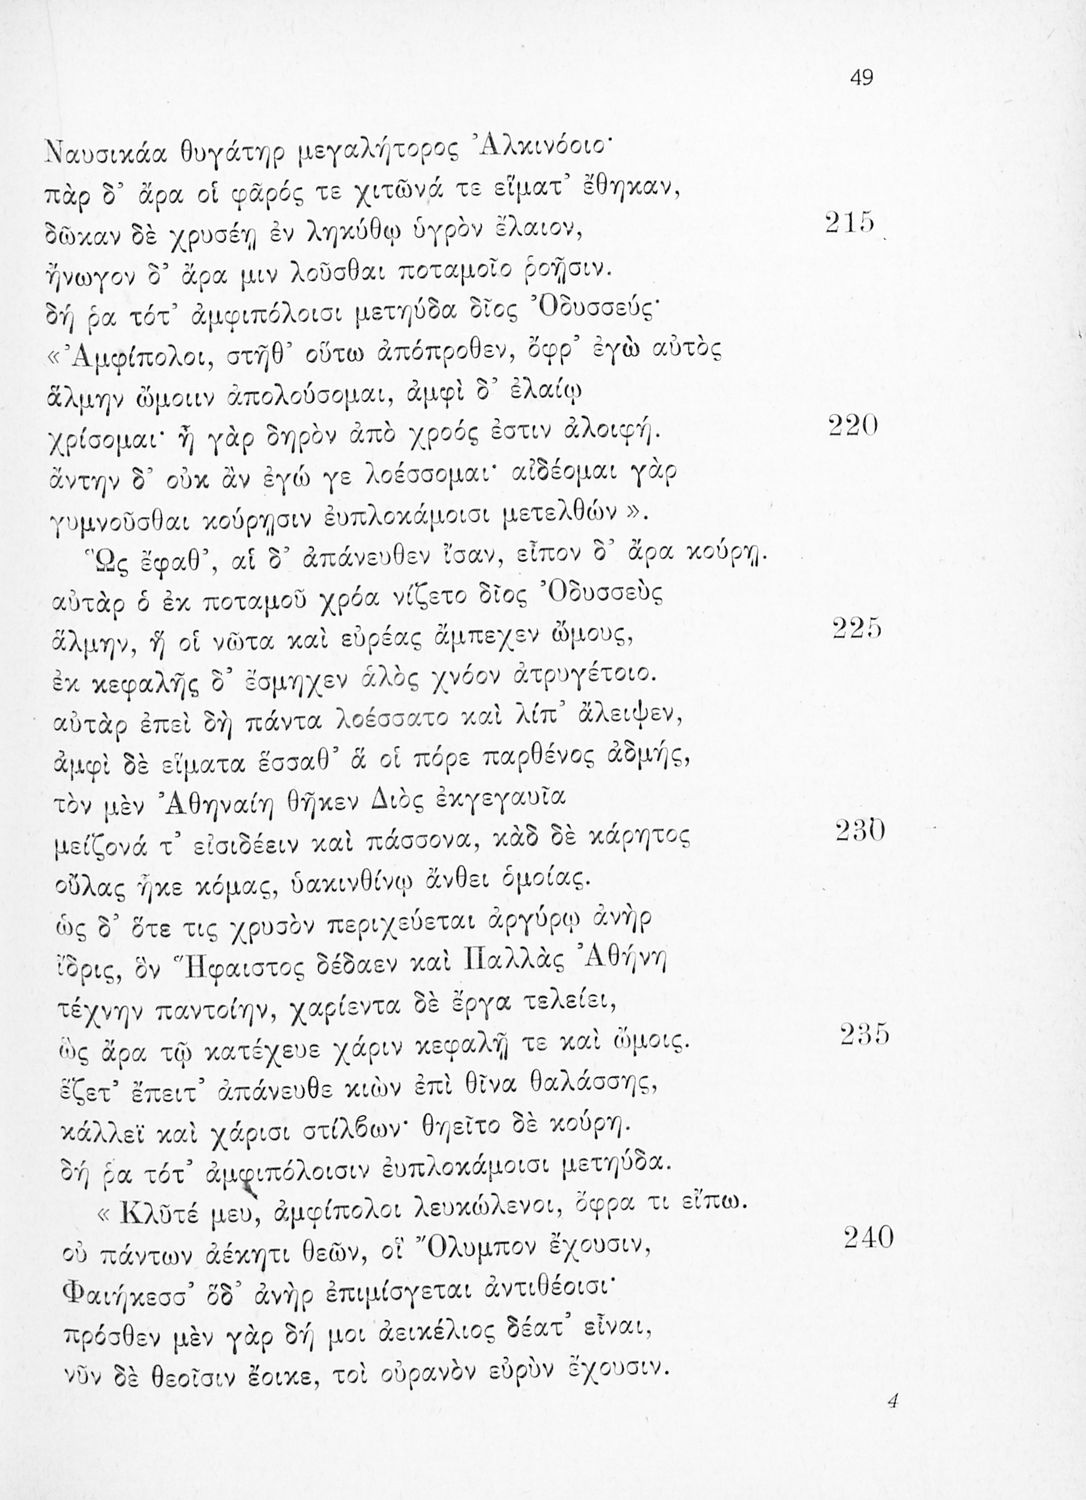 49
Ναυσικάα θυγάτηρ μεγαλήτορος Ἀλκινόοιο·
πὰρ δ’ ἄρα οἱ φᾶρός τε χιτῶνά τε εἵματ’ ἔθηκαν,
δῶκαν δὲ χρυσέῃ ἐν ληκύθῳ ὑγρὸν ἔλαιον, 215
ἤνωγον δ’ ἄρα μιν λοῦσθαι ποταμοῖο ῥοῇσιν.
δή ῥα τότ’ ἀμφιπόλοισι μετηύδα δῖος Ὀδυσσεύς·
«Ἀμφίπολοι, στῆθ’ οὕτω ἀπόπροθεν, ὄφρ’ ἐγὼ αὐτὸς
ἅλμην ὤμοιιν ἀπολούσομαι, ἀμφὶ δ’ ἐλαίῳ
χρίσομαι· ἦ γὰρ δηρὸν ἀπὸ χροός ἐστιν ἀλοιφή. 220
ἄντην δ’ οὐκ ἂν ἐγώ γε λοέσσομαι· αἰδέομαι γὰρ
γυμνοῦσθαι κούρῃσιν ἐυπλοκάμοισι μετελθών ».
Ὣς ἔφαθ’, αἱ δ’ ἀπάνευθεν ἴσαν, εἶπον δ’ ἄρα κούρῃ.
αὐτὰρ ὁ ἐκ ποταμοῦ χρόα νίζετο δῖος Ὀδυσσεὺς
ἅλμην, ἥ οἱ νῶτα καὶ εὐρέας ἄμπεχεν ὤμους, 225
ἐκ κεφαλῆς δ’ ἔσμηχεν ἁλὸς χνόον ἀτρυγέτοιο.
αὐτὰρ ἐπεὶ δὴ πάντα λοέσσατο καὶ λίπ’ ἄλειψεν,
ἀμφὶ δὲ εἵματα ἕσσαθ’ ἅ οἱ πόρε παρθένος ἀδμής,
τὸν μὲν Ἀθηναίη θῆκεν Διὸς ἐκγεγαυῖα
μείζονά τ’ εἰσιδέειν καὶ πάσσονα, κὰδ δὲ κάρητος 230
οὔλας ἧκε κόμας, ὑακινθίνῳ ἄνθει ὁμοίας.
ὡς δ’ ὅτε τις χρυσὸν περιχεύεται ἀργύρῳ ἀνὴρ
ἴδρις, ὃν Ἥφαιστος δέδαεν καὶ Παλλὰς Ἀθήνη
τέχνην παντοίην, χαρίεντα δὲ ἔργα τελείει,
ὣς ἄρα τῷ κατέχευε χάριν κεφαλῇ τε καὶ ὤμοις. 235
ἕζετ’ ἔπειτ’ ἀπάνευθε κιὼν ἐπὶ θῖνα θαλάσσης,
κάλλεϊ καὶ χάρισι στίλϐων· θηεῖτο δὲ κούρη.
δή ῥα τότ’ ἀμφιπόλοισιν ἐυπλοκάμοισι μετηύδα.
« Κλῦτέ μευ, ἀμφίπολοι λευκώλενοι, ὄφρα τι εἴπω.
οὐ πάντων ἀέκητι θεῶν, οἳ Ὄλυμπον ἔχουσιν, 240
Φαιήκεσσ’ ὅδ’ ἀνὴρ ἐπιμίσγεται ἀντιθέοισι·
πρόσθεν μὲν γὰρ δή μοι ἀεικέλιος δέατ’ εἶναι,
νῦν δὲ θεοῖσιν ἔοικε, τοὶ οὐρανὸν εὐρὺν ἔχουσιν.
4